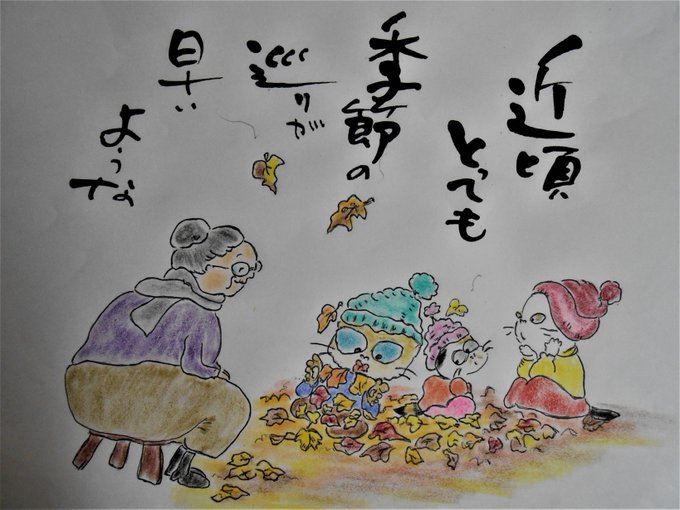 近頃
とっても
季節の
巡りが
早い
ような